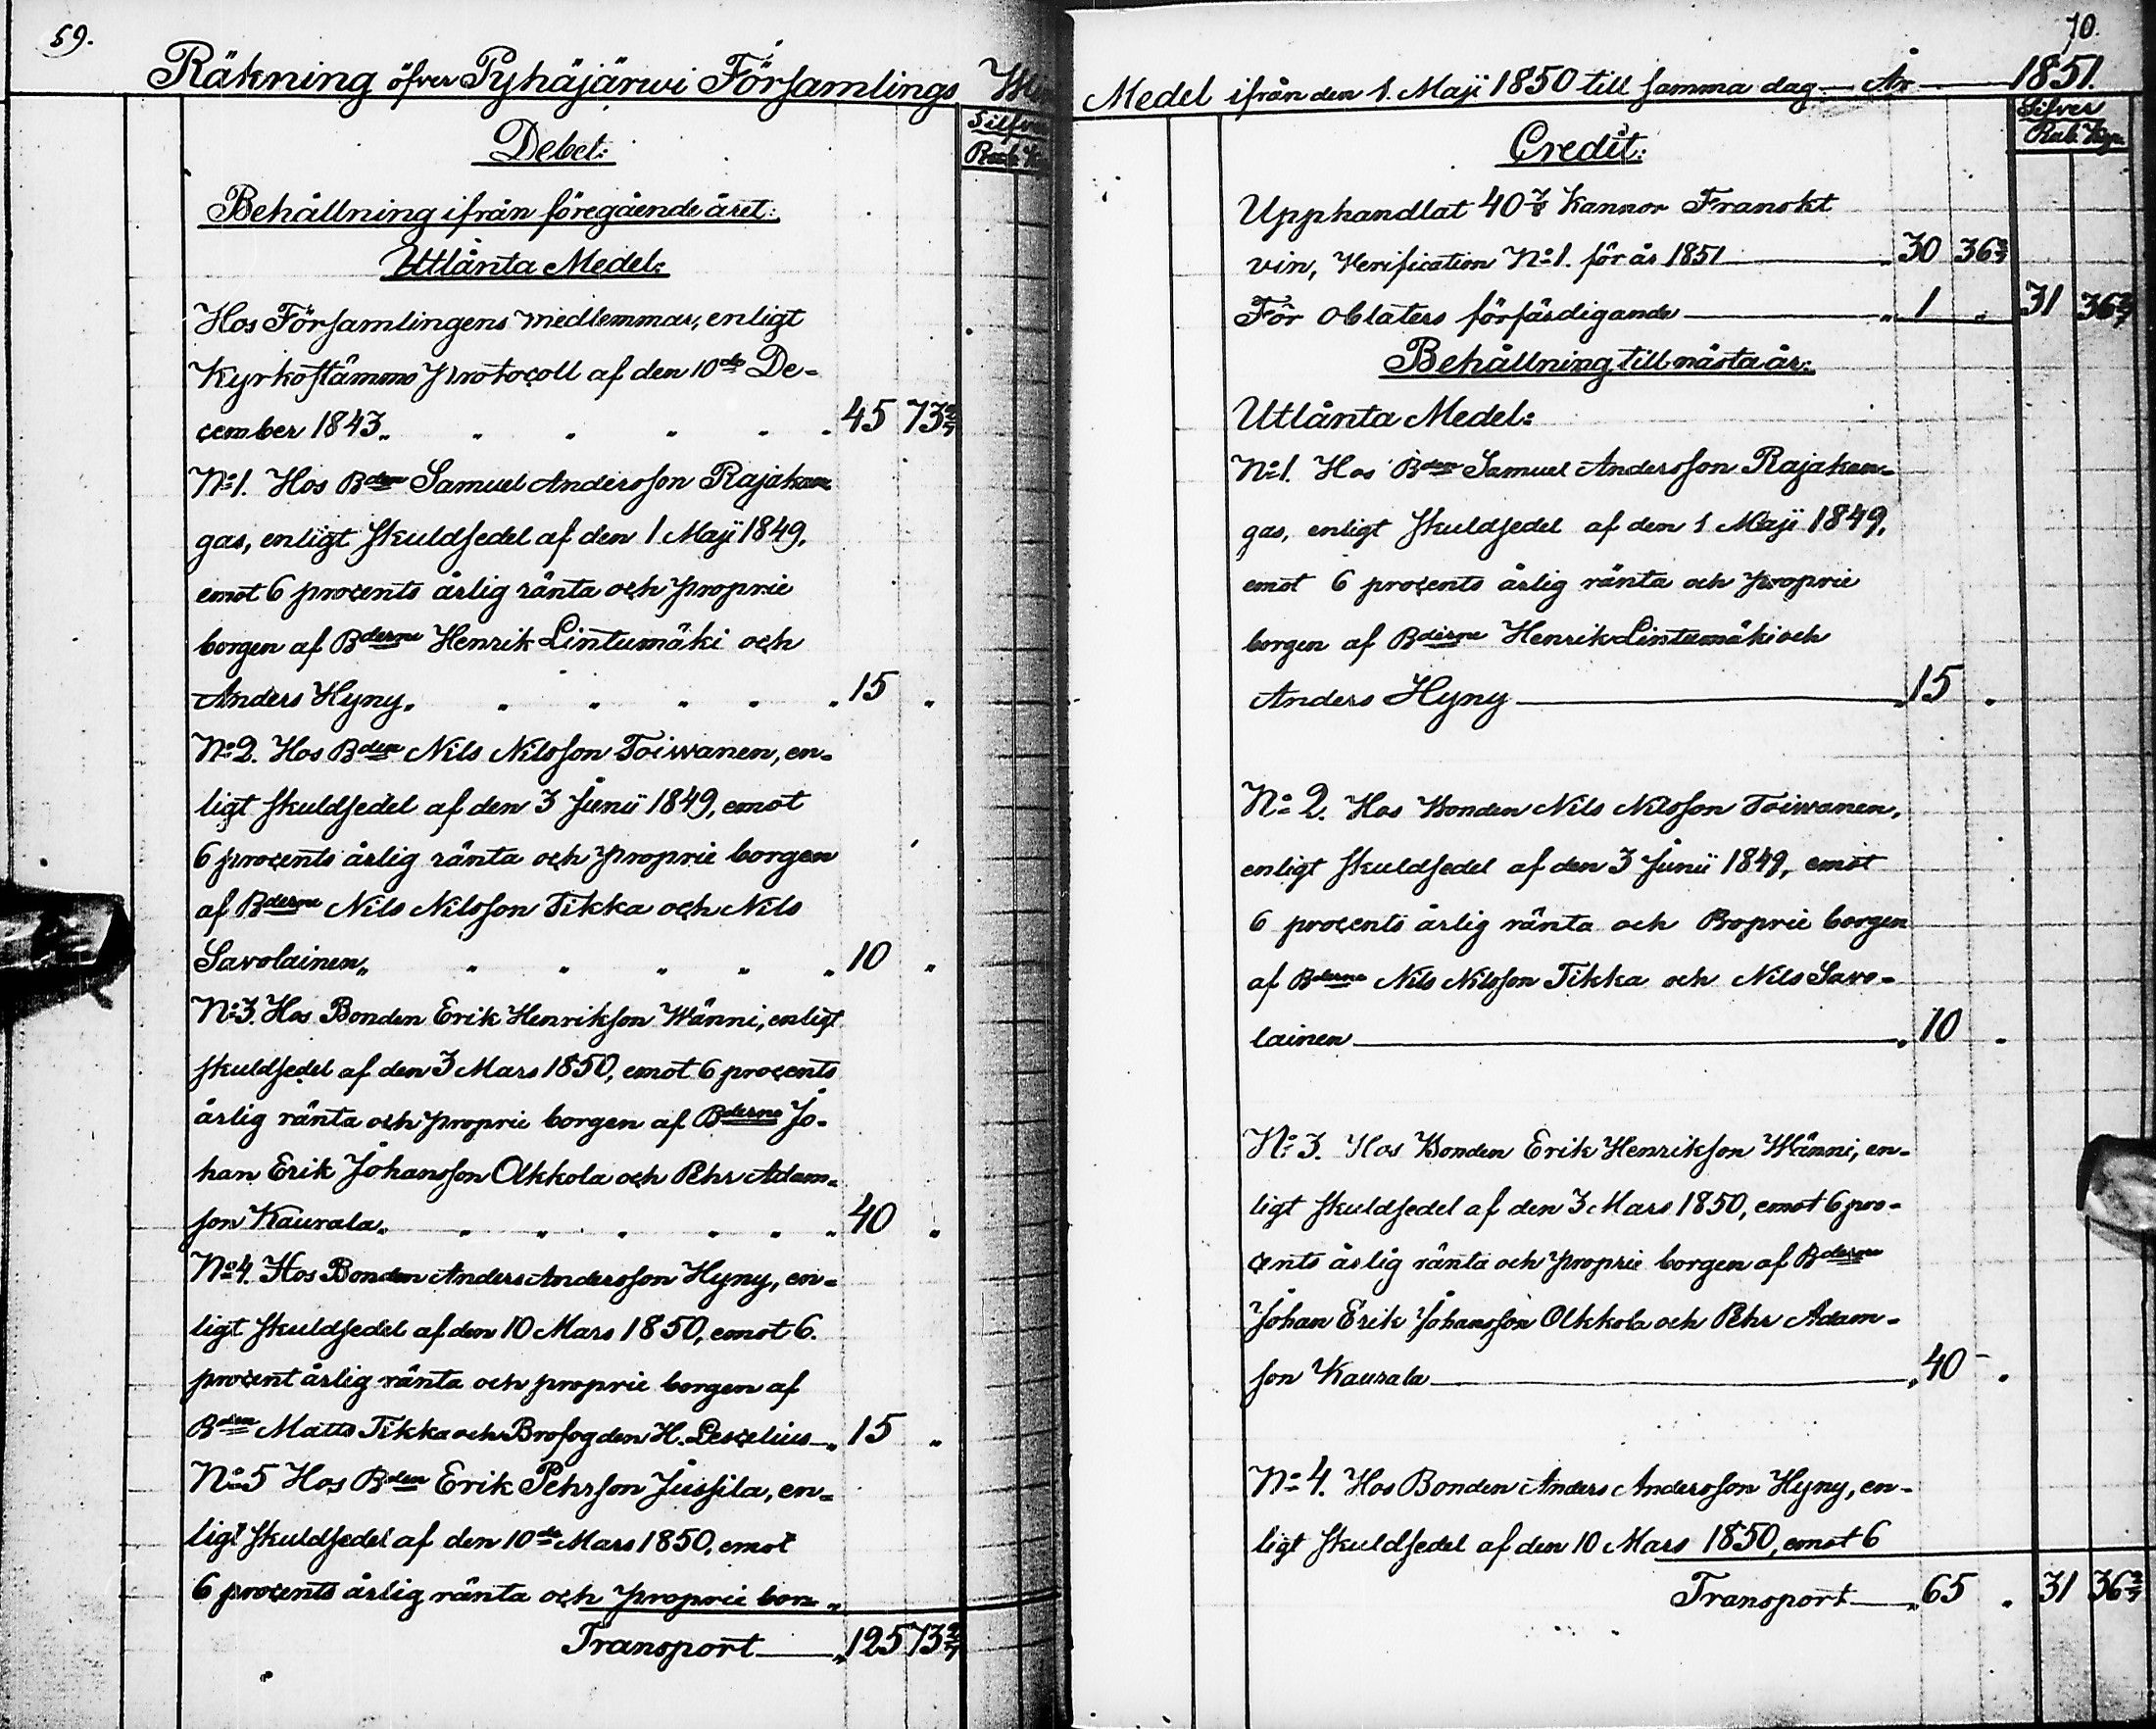 59.
Räkning öfver Pyhäjärwi Församlings
Debet:
Behållning ifrån föregående året:
Utlånta Medel:
Hos Församlingens medlemmar, enligt
Kyrkostämms Protocoll af den 10de De-
cember 1843 „ 45 73 2/7
No 1. Hos Bden Samuel Andersson Rajakan-
gas, enligt skuldsedel af den 1 Maji 1849,
emot 6 procents årlig ränta och proprie
borgen af Bderne Henrik Lintumäki och
Anders Hyny „ 15 „
No 2. Hos Bden Nils Nilsson Toiwanen, en-
ligt skuldsedel af den 3 Junii 1849, emot
6 procents årlig ränta och proprie borgen
af Bderne Nils Nilsson Tikka och Nils
Savolainen „ 10 „
No 3. Hos Bonden Erik Henrikson Wänni, enligt
skuldsedel af den 3 Mars 1850, emot 6 procents
årlig ränta och proprie borgen af Bderne Jo-
han Erik Johansson Olkkola och Pehr Adam-
son Kaurala „ 40 „
No 4. Hos Bonden Anders Andersson Hyny, en-
ligt skuldsedel af den 10 Mars 1850, emot 6.
procent årlig ränta och proprie borgen af
Bden Matts Tikka och Brofogden H. Lescelius „ 15 „
No 5 Hos Bden Erik Pehrson Jussila, en-
ligt skuldsedel af den 10de Mars 1850, emot
6 procents årlig ränta och proprie bor-
Transport „ 125 73 2/7
70.
Medel ifrån den 1. Maji 1850 till samma dag År 1851.
Silfver
Rub. Kop.
Credit:
Upphandlat 40 7/8 Kannor Franskt
vin, Verification No 1. för år 1851 „ 30 36 2/7
För oblaters förfärdigande „ 1 „ 31 36 2/7
Behållning till nästa år:
Utlånta Medel:
No 1. Hos Bden Samuel Andersson Rajakan-
gas, enligt skuldsedel af den 1 Maji 1849,
emot 6 procents årlig ränta och proprie
borgen af Bderne Henrik Lintumäki och
Anders Hyny „ 15 „
No 2. Hos Bonden Nils Nilsson Toiwanen,
enligt skuldsedel af den 3 Junii 1849, emot
6 procents årlig ränta och Proprie borgen
af Bderne Nils Nilsson Tikka och Nils Savo-
lainen „ 10 „
No 3. Hos Bonden Erik Henrikson Wänni, en-
ligt skuldsedel af den 3 Mars 1850, emot 6 pro-
cents årlig ränta och proprie borgen af Bderne
Johan Erik Johansson Olkkola och Pehr Adam-
son Kaurala „ 40 „
No 4. Hos Bonden Anders Andersson Hyny, en-
ligt skuldsedel af den 10 Mars 1850, emot 6
Transport „ 65 „ 31 36 2/7